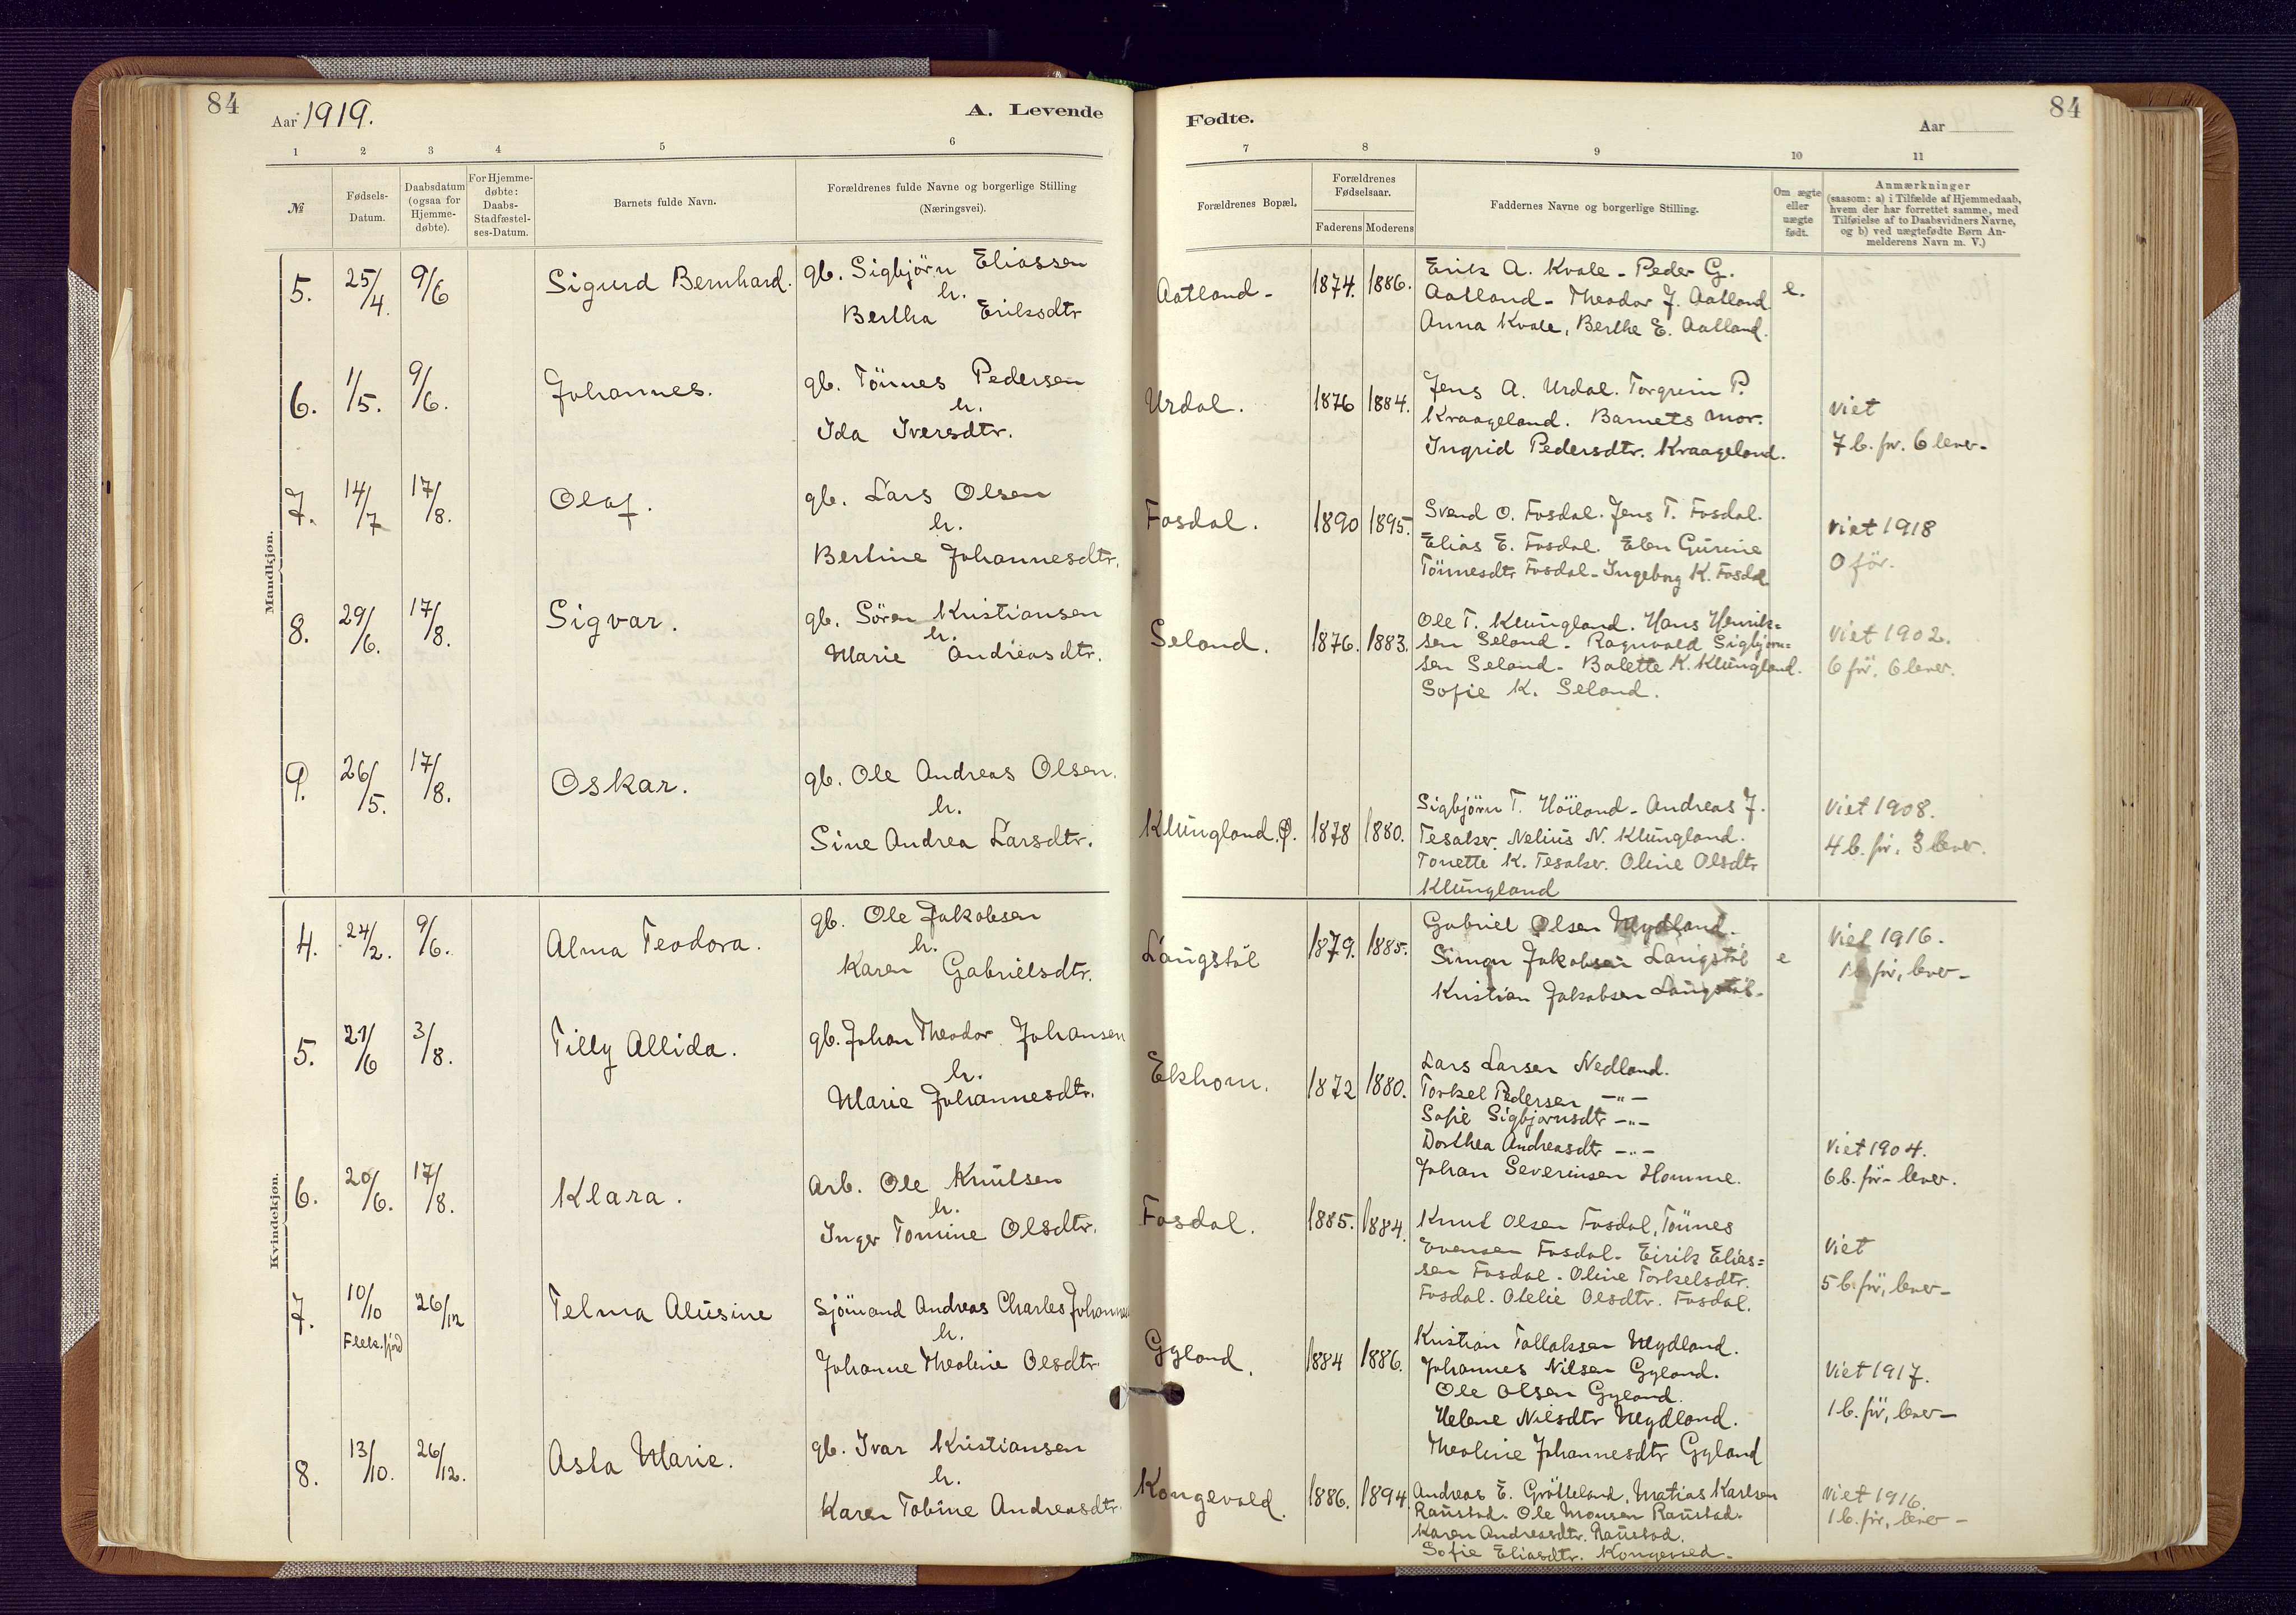 84
Aar 1919.
A. Levende
1 2 3 4 5 6
№
Fødsels-
Datum.
Daabsdatum
(ogsaa for
Hjemme-
døbte).
For Hjemme-
døbte:
Daabs-
Stadfæstel-
ses-Datum.
Barnets fulde Navn.
Forældrenes fulde Navne og borgerlige Stilling
(Næringsvei).
Mandkjøn.
5. 25/4. 9/6 Sigurd Bernhard. gb. Sigbjörn Eliassen
h.
Bertha Eriksdtr
6. 1/5. 9/6. Johannes. gb. Tönnes Pedersen
h.
Ida Iversdtr.
7. 14/7 17/8. Olaf. gb. Lars Olsen
h.
Bertine Johannesdtr.
8. 29/6. 17/8. Sigvar. gb. Sören Kristiansen
h.
Marie Andreasdtr.
9. 26/5. 17/8. Oskar. gb. Ole Andreas Olsen.
h.
Sine Andrea Larsdtr.
Kvindekjøn.
4. 24/2. 9/6. Alma Teodora. gb. Ole Jakobsen
h.
Karen Gabrielsdtr.
5. 21/6 3/8. Tilly Allida. gb. Johan Theodor Johansen
h.
Marie Johannesdtr.
6. 20/6. 17/8. Klara. Arb. Ole Knutsen
h.
Inger Tomine Olsdtr.
7. 10/10 26/12 Telma Alusine Sjömand Andreas Charles Johannes
Flekkefjord
h.
Johanne Theoline Olsdtr.
8. 13/10. 26/12. Asta Marie. gb. Ivar Kristiansen
h.
Karen Tobine Andreasdtr.
Fødte.
84
Aar
7 8 9 10 11
Forældrenes Bopæl.
Forældrenes
Fødselsaar.
Faderens Moderens
Faddernes Navne og borgerlige Stilling.
Om ægte
eller
uægte
født.
Anmærkninger
(saasom: a) i Tilfælde af Hjemmedaab,
hvem der har forrettet samme, med
Tilføielse af to Daabsvidners Navne,
og b) ved uægtefødte Børn An-
melderens Navn m. V.)
Aatland - 1874. 1886. Erik A. Kvale - Peder G. e.
Aatland - Theodor J. Aatland
Anna Kvale, Berthe E. Aatland.
Urdal. 1876 1884. Jens A. Urdal. Torgrim P.
Kraageland. Barnets mor.
Ingrid Pedersdtr. Kraageland.
viet
7 b. før. 6 lever-
Fosdal. 1890 1895. Svend O. Fosdal. Jens T. Fosdal.
Elias E. Fosdal. Elen Gurine
Tönnesdtr Fosdal - Ingeborg K. Fosdal
viet 1918
0 för.
Seland. 1876. 1883. Ole T. Klungland. Hans Henrik=
sen Seland - Ragnvald Sigbjörn=
sen Seland - Balette K. Klungland.
Sofie K. Seland.
viet 1902.
6 för, 6 lever.
Klungland. Ø. 1878 1880. Sigbjörn T. Höiland - Andreas J.
Tesaker. Nelius N. Klungland.
Tonette K. Tesaker. Oline Olsdtr
Klungland
viet 1908.
4 b. för. 3 lever.
Langstöl 1879. 1885. Gabriel Olsen Mydland.
Simon Jakobsen Langstöl e
Kristian Jakobsen Langstöl.
viet 1916.
1 b. för, lever-
Ekhom. 1872 1880. Lars Larsen Nedland.
Torkel Pedersen —"—
Sofie Sigbjørnsdtr —"—
Dorthea Andreasdtr —"—
Johan Severinsen Homme.
viet 1904.
6 b. för - lever.
Fosdal. 1885. 1884. Knut Olsen Fosdal, Tönnes
Evensen Fosdal. Eirik Elias=
sen Fosdal. Oline Torkelsdtr.
Fosdal. Olelie Olsdtr. Fosdal.
viet
5 b. för, lever-
Gyland. 1884 1886. Kristian Tallaksen Mydland.
Johannes Nilsen Gyland.
Ole Olsen Gyland.
Helene Nilsdtr Mydland.
Theoline Johannesdtr Gyland
viet 1917.
1 b. för, lever-
Kongevold. 1886. 1894. Andreas E. Grötteland, Matias Karlsen
Raustad. Ole Monsen Raustad.
Karen Andreasdtr. Raustad.
Sofie Eliasdtr. Kongevold.
viet 1916.
1 b. för, lever -